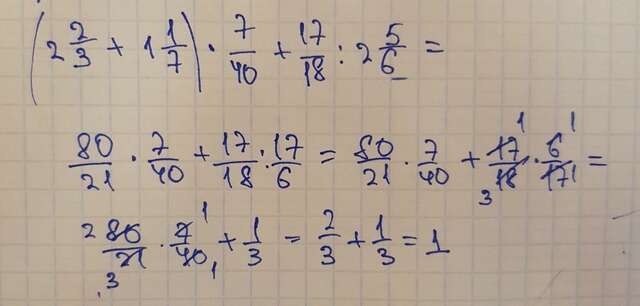 (2 2/3 + 1 1/7) · 7/40 + 17/18 : 2 5/6 =
80/21 · 7/40 + 17/18 : 17/6 = 80/21 · 7/40 + 17/18 · 6/17 =
80/21 · 7/40 + 1/3 = 2/3 + 1/3 = 1